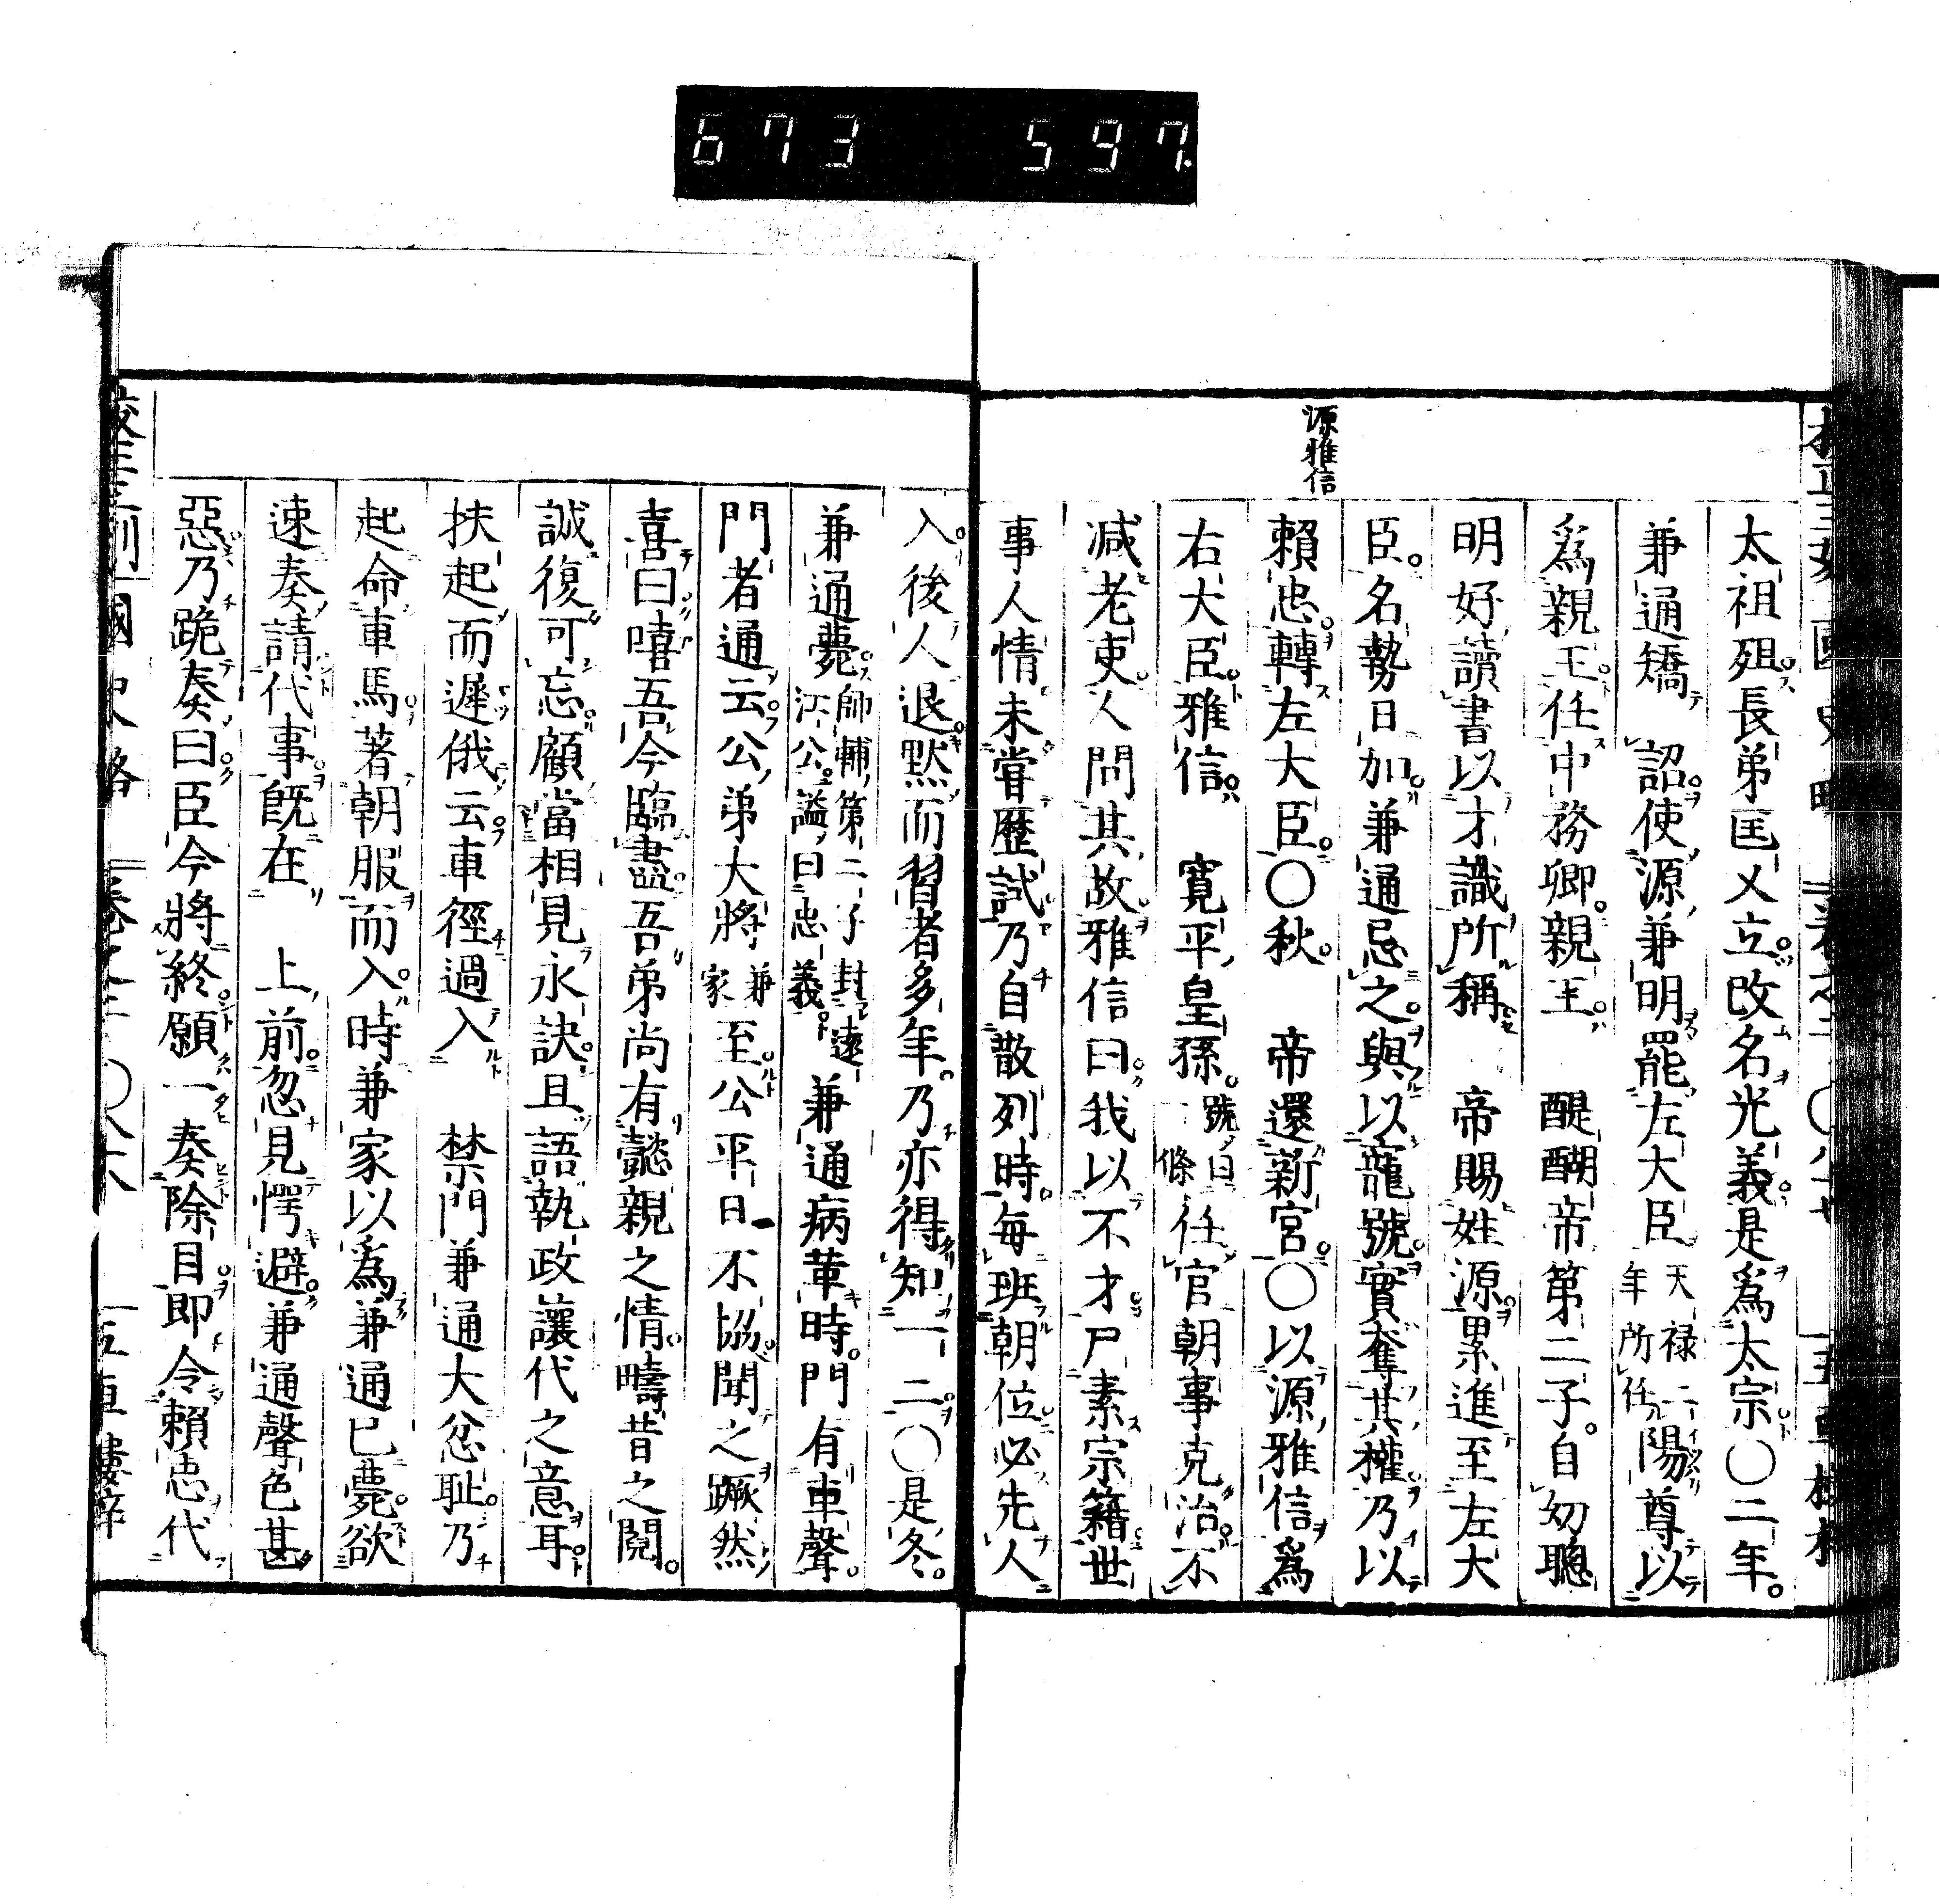 673 597.
源雅信
太祖殂長弟匡乂立改名光義是爲太宗〇二年
兼通矯 詔使源兼明罷左大臣天禄二年所任陽尊以
爲親王任中務卿親王 醍醐帝第二子自幼聰
明好讀書以才識所稱 帝賜姓源累進至左大
臣名勢日加兼通忌之與以寵號實奪其權乃以
賴忠轉左大臣〇秋 帝還新宮〇以源雅信爲
右大臣雅信 寛平皇孫號一條任官朝事克治不
减老吏人問其故雅信曰我以不才尸素宗籍世
事人情未嘗歷試乃自散列時每班朝位必先人
入後人退默而習者多年乃亦得知一二〇是冬
兼通薨師輔第二子封遠江公謚曰忠義兼通病革時門有車聲
門者通云公弟大將兼家至公平日不協聞之蹶然
喜曰嘻吾今臨盡吾弟尚有懿親之情疇昔之鬩
誠復可忘顧當相見永訣且語執政讓代之意耳
扶起而遲俄云車徑過入 禁門兼通大忿恥乃
起命車馬著朝服而入時兼家以爲兼通已薨欲
速奏請代事既在 上前忽見愕避兼通聲色甚
惡乃跪奏曰臣今將終願一奏除目即令賴忠代